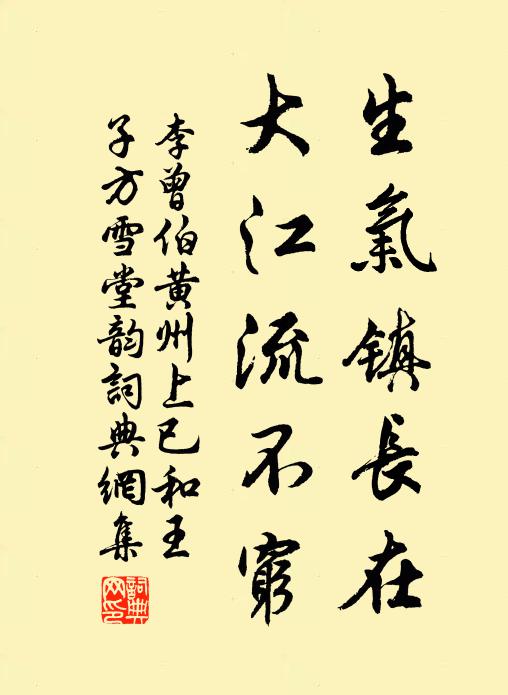 生氣鎮長在
大江流不窮
李曾伯黃州上巳和王
子方雪堂韵詞典網集
詞典網印